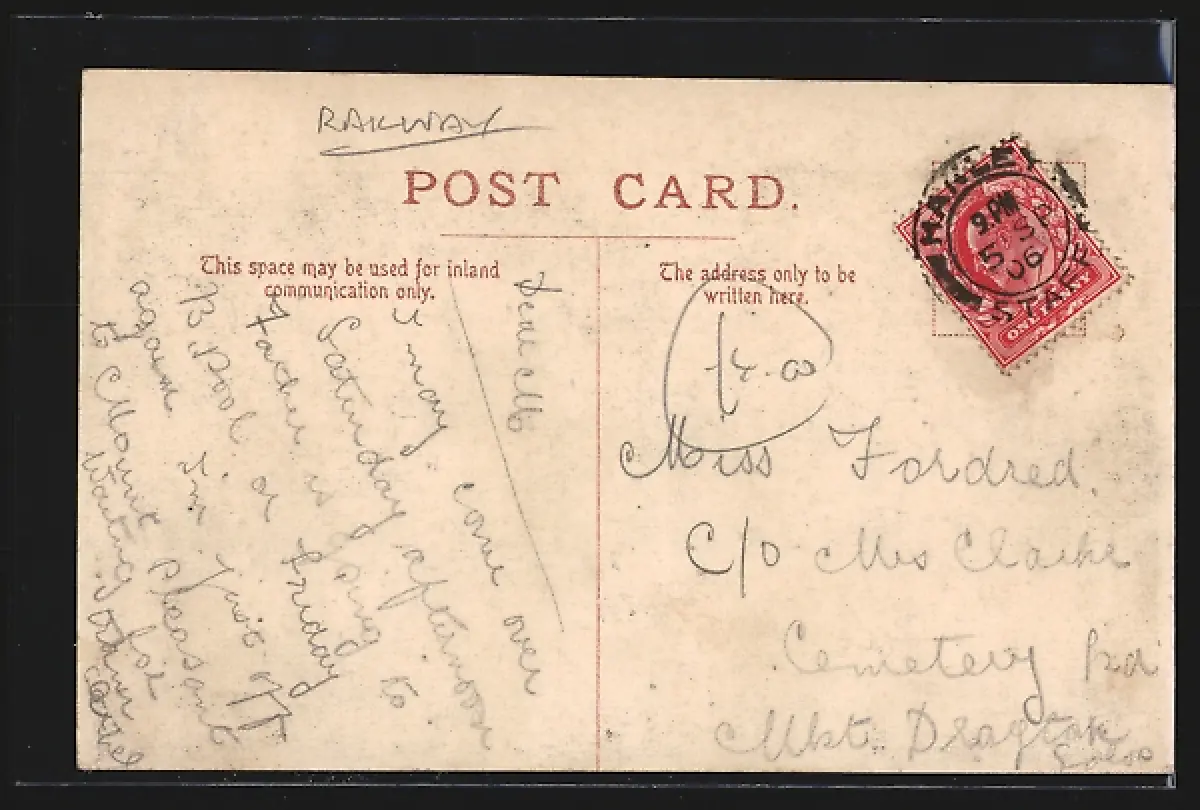 RAILWAY
POST CARD.
This space may be used for inland
communication only.
The address only to be
written here.
HANLEY
9. PM
5 06
STAFF
ONE PENNY
14.00
Dear M
I may come over
Saturday afternoon
Father is going to
B.Pool on Friday
again I'm just off
to Mount Pleasant
Waiting for
Miss Fordred.
C/o Mrs Clarke
Cemetery Rd
Mkt. Drayton
Salop